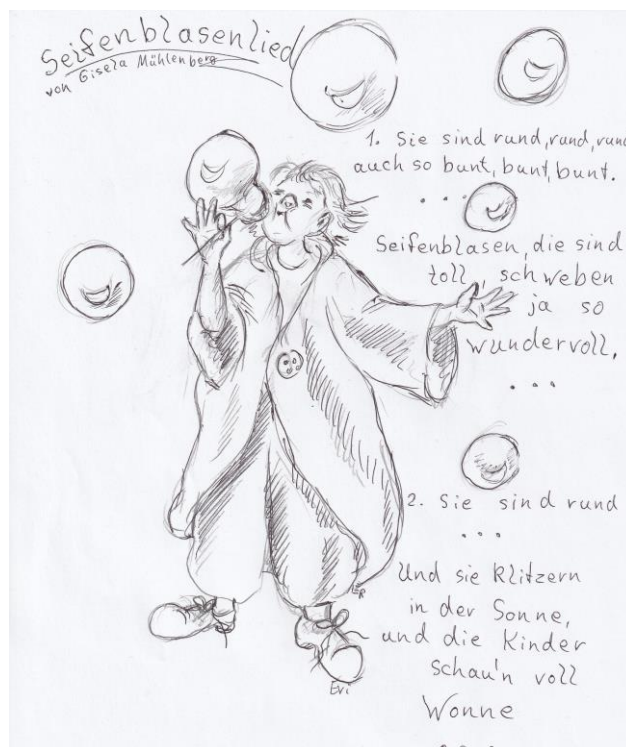 Seifenblasenlied
von Gisela Mühlenberg
1. Sie sind rund, rund, rund
auch so bunt, bunt, bunt.
. . .
Seifenblasen, die sind
toll, schweben
ja so
wundervoll.
. . .
2. Sie sind rund
. . .
Und sie klitzern
in der Sonne,
und die Kinder
schau'n voll
Wonne
. . .
Evi